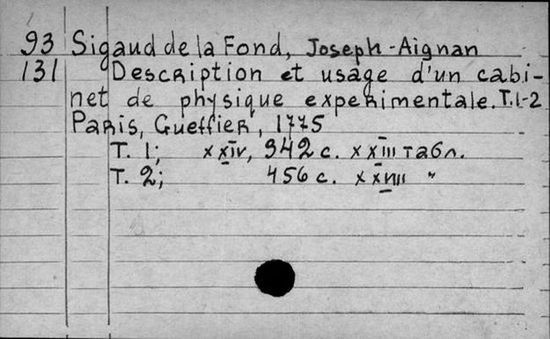 93 Sigaud de la Fond, Joseph-Aignan
131 Description et usage d'un cabi-
net de physique experimentale. T. 1-2
Paris, Gueffier, 1775
T. 1; xxiv, 342 с. xxiii табл.
T. 2; 456 с. xxviii "